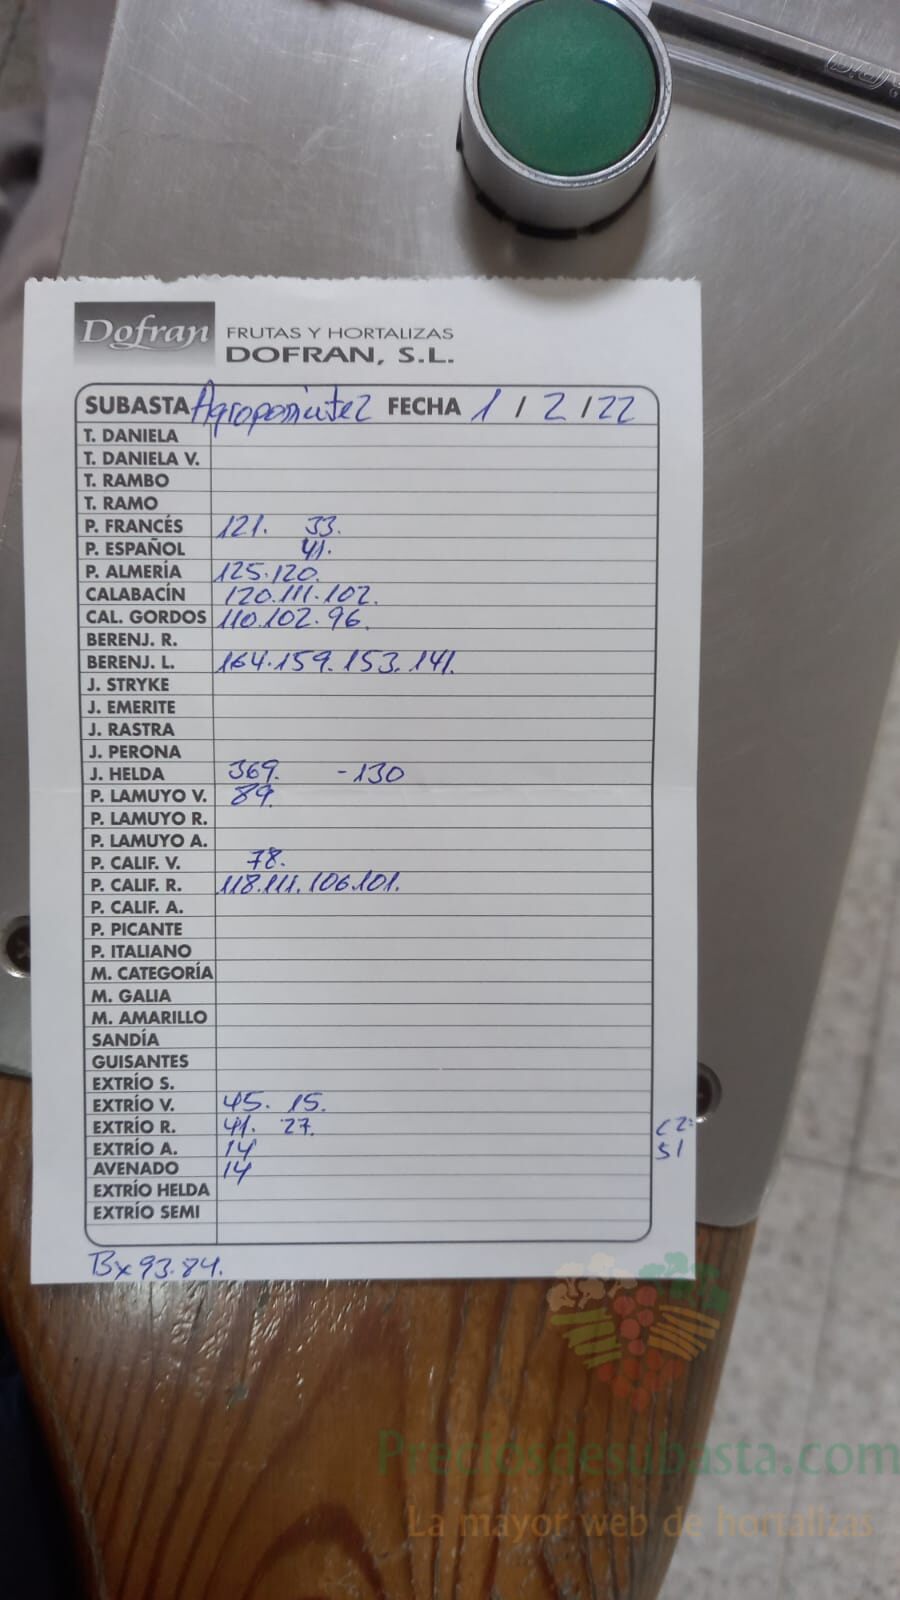 Dofran FRUTAS Y HORTALIZAS
DOFRAN, S.L.
SUBASTA Agroponiente2 FECHA 1 / 2 / 22
T. DANIELA
T. DANIELA V.
T. RAMBO
T. RAMO
P. FRANCÉS 121. 33.
P. ESPAÑOL 41.
P. ALMERÍA 125.120.
CALABACÍN 120.111.102.
CAL. GORDOS 110.102.96.
BERENJ. R.
BERENJ. L. 164.159.153.141.
J. STRYKE
J. EMERITE
J. RASTRA
J. PERONA
J. HELDA 369. -130
P. LAMUYO V. 89.
P. LAMUYO R.
P. LAMUYO A.
P. CALIF. V. 78.
P. CALIF. R. 118.111.106.101.
P. CALIF. A.
P. PICANTE
P. ITALIANO
M. CATEGORÍA
M. GALIA
M. AMARILLO
SANDÍA
GUISANTES
EXTRÍO S.
EXTRÍO V. 45. 15.
EXTRÍO R. 41. 27.
EXTRÍO A. 14
AVENADO 14
EXTRÍO HELDA
EXTRÍO SEMI
Bx 93.84.
Preciosdesubasta.com
La mayor web de hortalizas